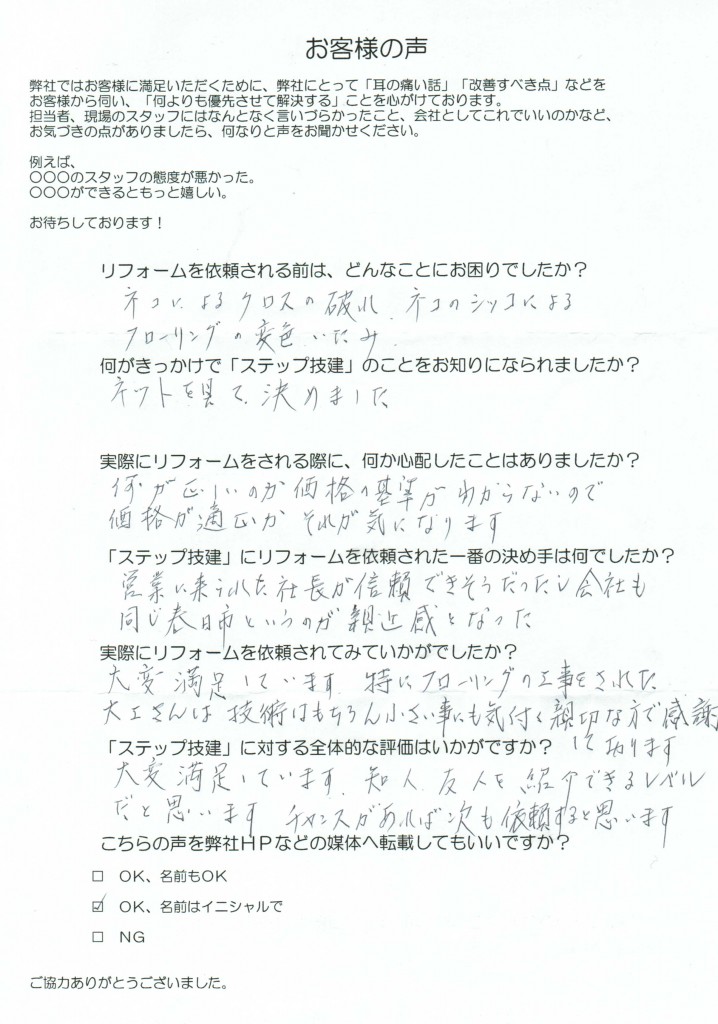 お客様の声
弊社ではお客様に満足いただくために、弊社にとって「耳の痛い話」「改善すべき点」などを
お客様から伺い、「何よりも優先させて解決する」ことを心がけております。
担当者、現場のスタッフにはなんとなく言いづらかったこと、会社としてこれでいいのかなど、
お気づきの点がありましたら、何なりと声をお聞かせください。
例えば、
〇〇〇のスタッフの態度が悪かった。
〇〇〇ができるともっと嬉しい。
お待ちしております！
リフォームを依頼される前は、どんなことにお困りでしたか？
ネコによるクロスの破れ、ネコのシッコによる
フローリングの変色いたみ
何がきっかけで「ステップ技建」のことをお知りになられましたか？
ネットを見て、決めました
実際にリフォームをされる際に、何か心配したことはありましたか？
何が正しいのか価格の基準がわからないので
価格が適正か それが気になります
「ステップ技建」にリフォームを依頼された一番の決め手は何でしたか？
営業に来られた社長が信頼できそうだったし会社も
同じ春日市というのが親近感となった
実際にリフォームを依頼されてみていかがでしたか？
大変満足しています。特にフローリングの工事をされた
大工さんは技術はもちろん小さい事にも気付く親切な方で感謝
して おります
「ステップ技建」に対する全体的な評価はいかがですか？
大変満足しています。知人、友人を紹介できるレベル
だと思います チャンスがあれば次も依頼すると思います
こちらの声を弊社ＨＰなどの媒体へ転載してもいいですか？
□ ＯＫ、名前もＯＫ
☑ ＯＫ、名前はイニシャルで
□ ＮＧ
ご協力ありがとうございました。